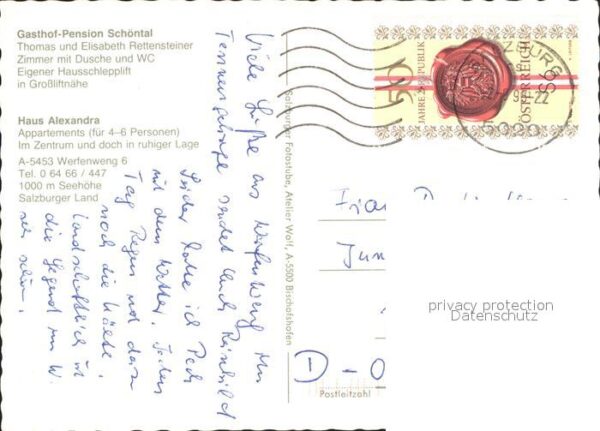 Gasthof-Pension Schöntal
Thomas und Elisabeth Rettensteiner
Zimmer mit Dusche und WC
Eigener Hausschlepplift
in Großliftnähe
Haus Alexandra
Appartements (für 4–6 Personen)
Im Zentrum und doch in ruhiger Lage
A-5453 Werfenweng 6
Tel. 0 64 66 / 447
1000 m Seehöhe
Salzburger Land
Viele Grüße aus Werfenweng
Tennengebirge sendet Euch Reinhild
Leider hatte ich Pech
mit dem Wetter. Jeden
Tag Regen und dazu
noch die Kälte.
Landschaftlich ist
die Gegend um W.
sehr schön.
Salzburger Fotostube, Atelier Wolf, A-5500 Bischofshofen
50 JAHRE 2. REPUBLIK
ÖSTERREICH
Postleitzahl
privacy protection
Datenschutz